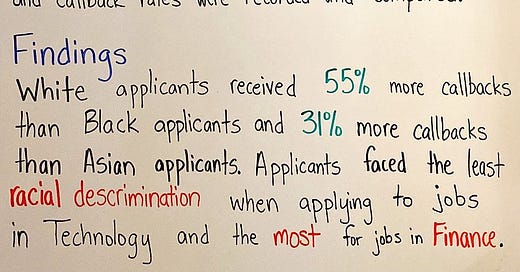 and callback rates were recorded and compared.
Findings
White applicants received 55% more callbacks
than Black applicants and 31% more callbacks
than Asian applicants. Applicants faced the least
racial discrimination when applying to jobs
in Technology and the most for jobs in Finance.